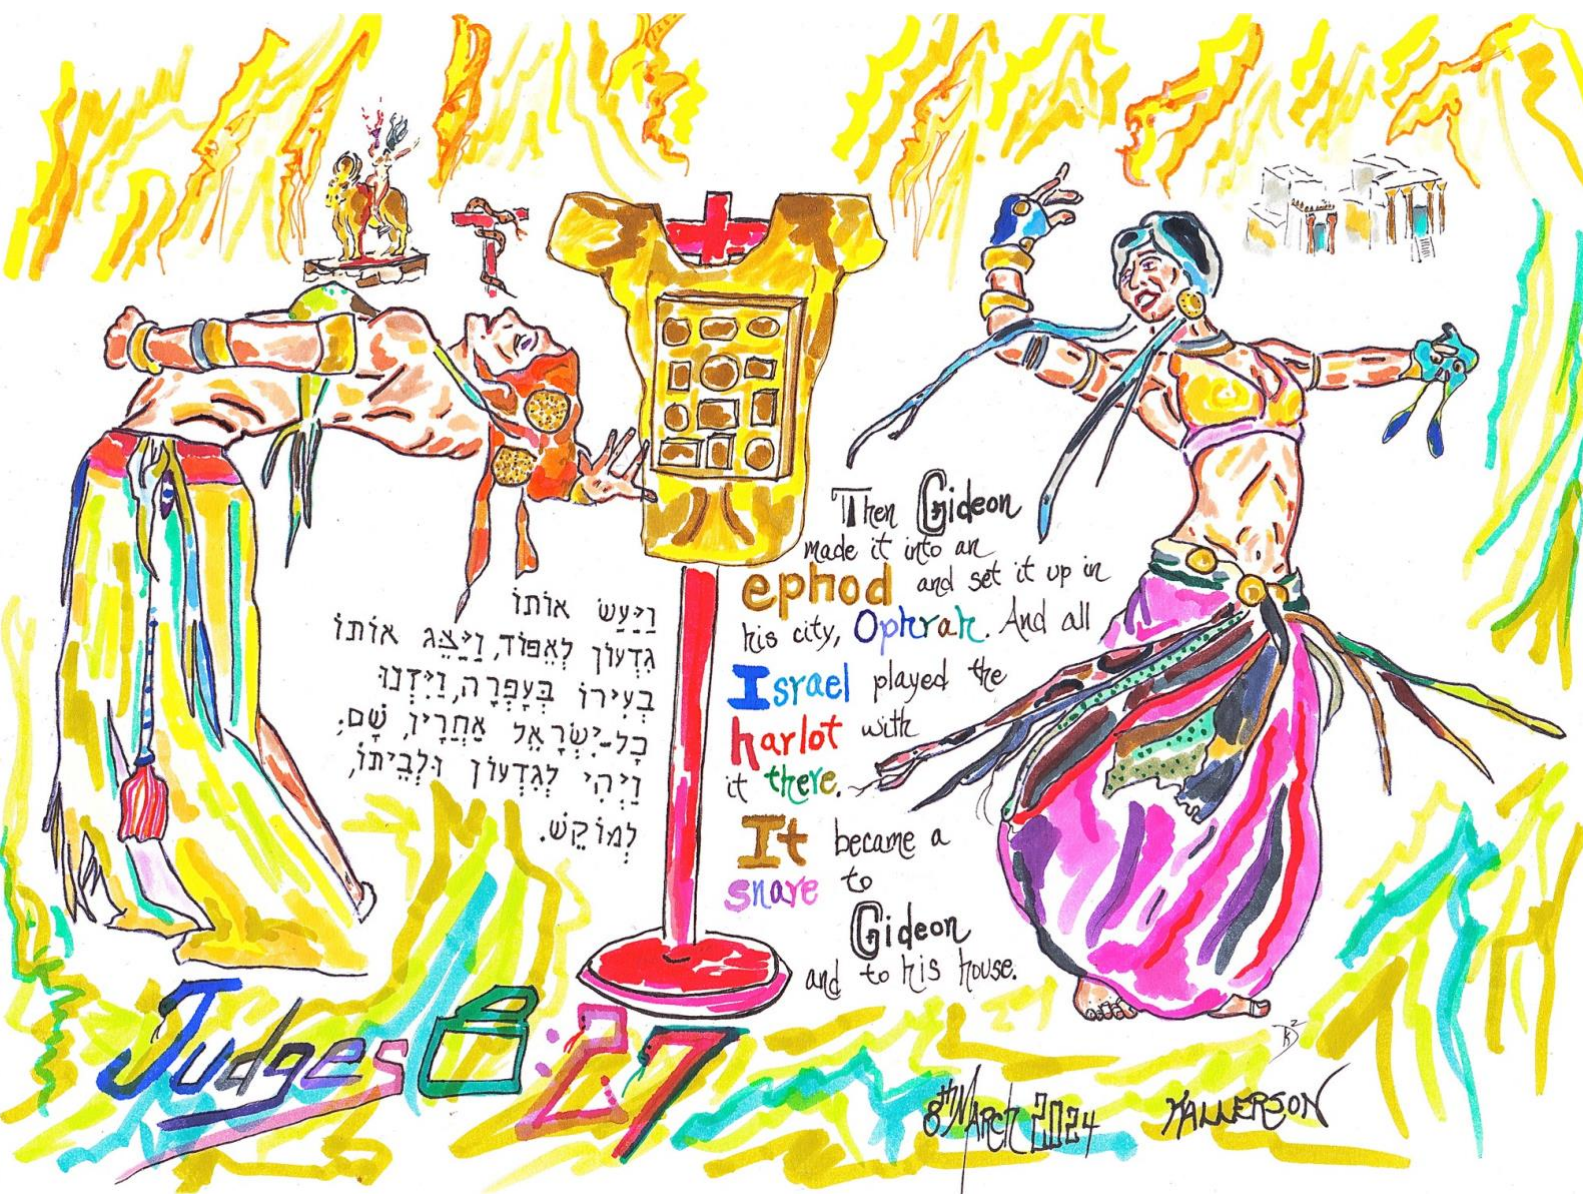 וַיַּעַשׂ אוֹתוֹ
גִדְעוֹן לְאֵפוֹד, וַיַּצֵּג אוֹתוֹ
בְעִירוֹ בְּעָפְרָה, וַיִּזְנוּ
כָל-יִשְׂרָאֵל אַחֲרָיו, שָׁם;
וַיְהִי לְגִדְעוֹן וּלְבֵיתוֹ,
לְמוֹקֵשׁ.
Then Gideon
made it into an
ephod and set it up in
his city, Ophrah. And all
Israel played the
harlot with
it there.
It became a
snare to
Gideon
and to his house.
Judges 8:27
8th March 2024
KALLERSON